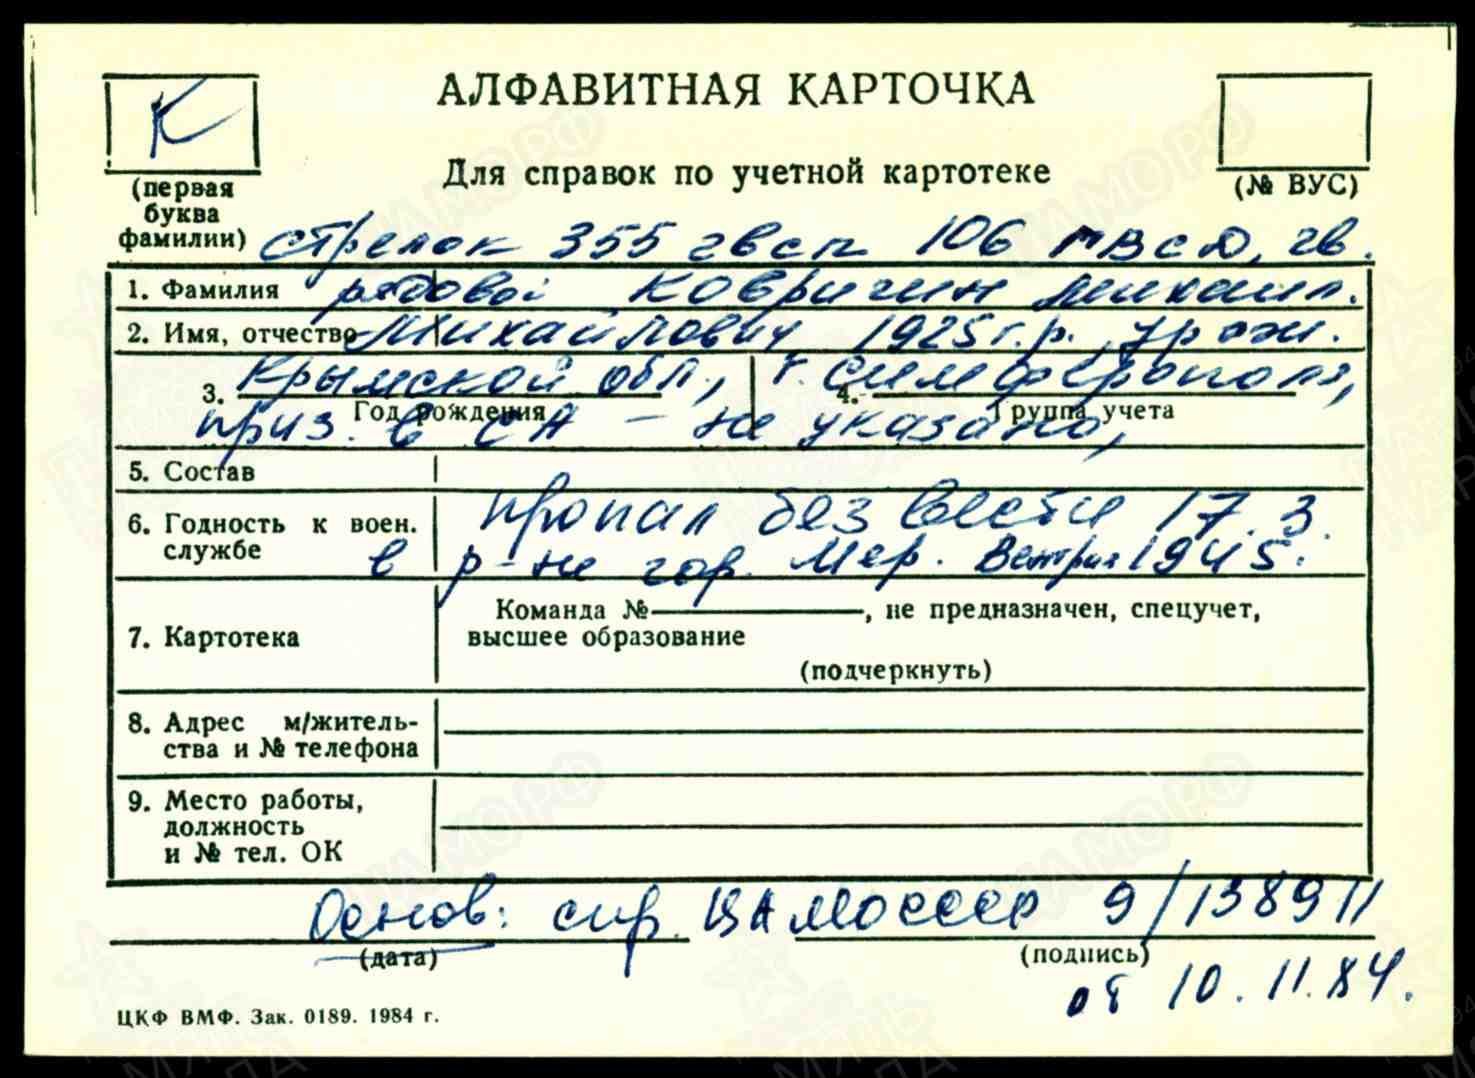 К
АЛФАВИТНАЯ КАРТОЧКА
Для справок по учетной картотеке
(первая
буква
фамилии)
(№ ВУС)
стрелок 355 гвсп 106 гвсд, гв.
1. Фамилия рядовой Ковригин Михаил.
2. Имя, отчество Михайлович 1925 г.р., урож.
Крымской обл., г. Симферополь,
3. Год рождения
4. Группа учета
приз. в СА - не указано,
5. Состав
6. Годность к воен.
службе
пропал без вести 17.3.
в р-не гор. Мер. Венгрия 1945.
7. Картотека
Команда № , не предназначен, спецучет,
высшее образование
(подчеркнуть)
8. Адрес м/житель-
ства и № телефона
9. Место работы,
должность
и № тел. ОК
Основ: спр. ЦАМО СССР 9/138911
(дата)
(подпись)
от 10.11.84.
ЦКФ ВМФ. Зак. 0189. 1984 г.
ЦАМО РФ